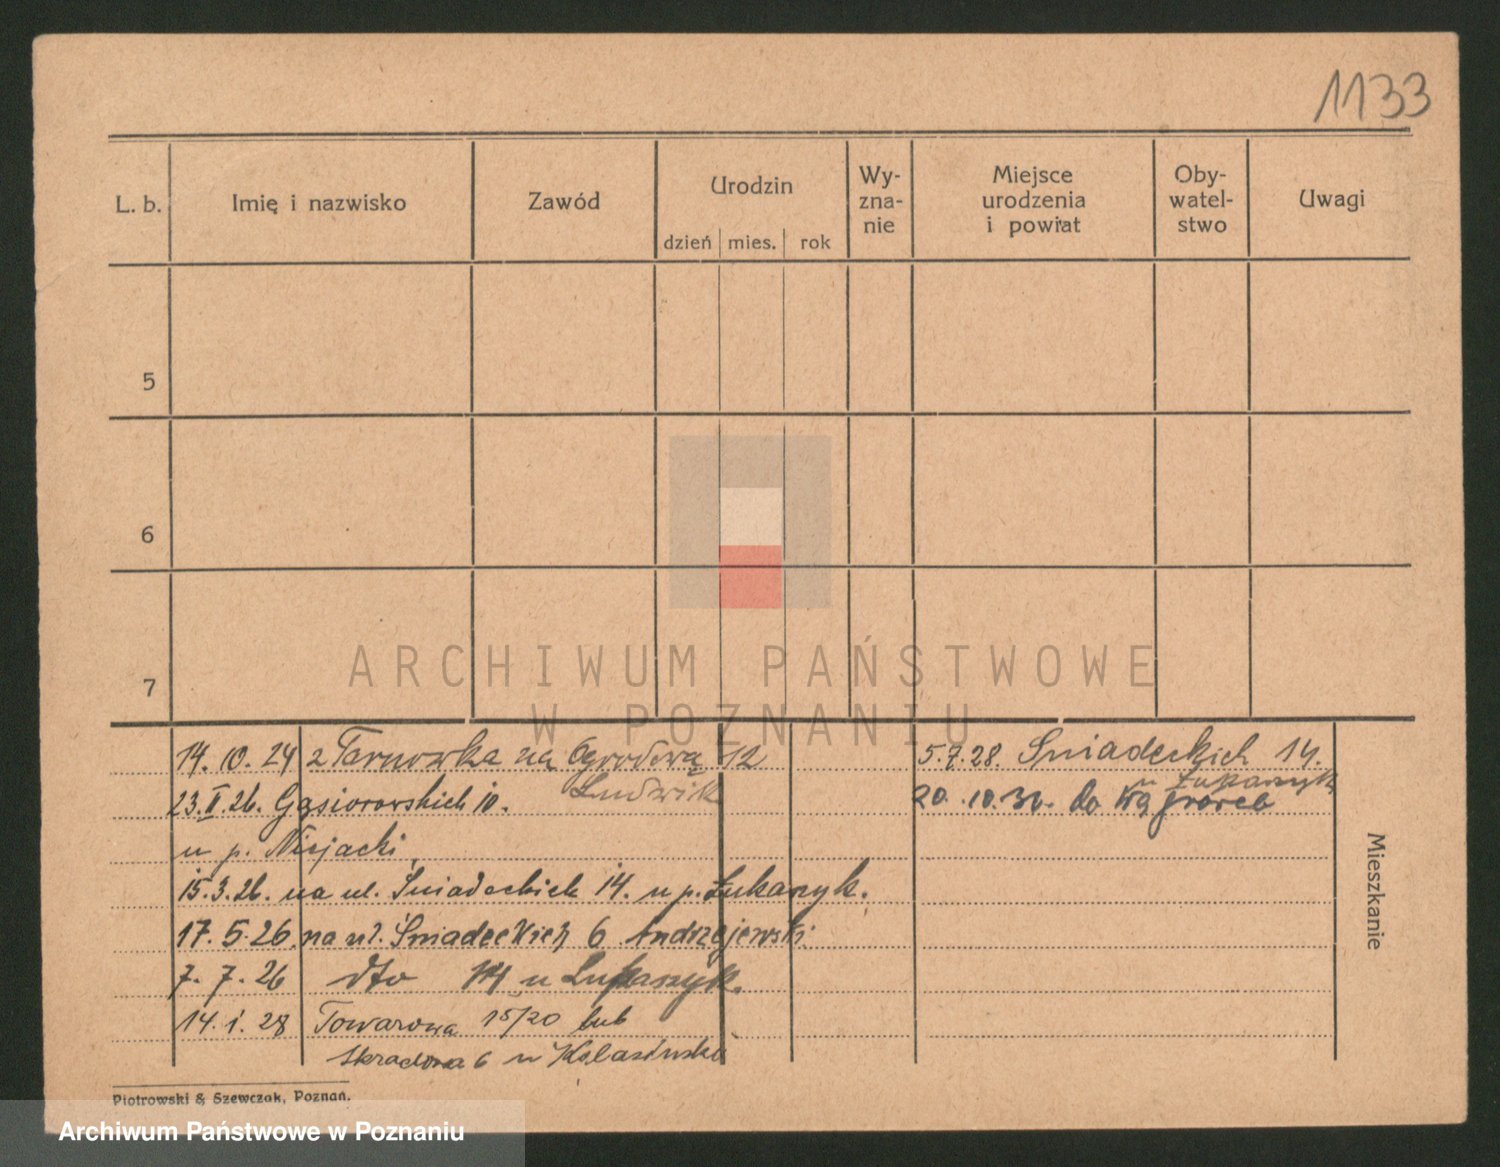 1133
L. b. Imię i nazwisko Zawód Urodzin dzień mies. rok Wy-zna-nie Miejsce urodzenia i powiat Oby-watel-stwo Uwagi
5
6
7
ARCHIWUM PAŃSTWOWE
W POZNANIU
14.10.24 z Tarnowka na Ogrodową 12
Ludwik
23.II.26. Gąsiorowskich 10.
u p. Nisjacki
15.3.26. na ul. Śniadeckich 14. u p. Łukaszyk.
17.5.26 na ul. Śniadeckich 6 Andrzejewski
7.7.26 dto 14 u Łukaszyk.
14.1.28 Towarowa 15/20 lub
6 u Kolasińska
5.7.28. Śniadeckich 14.
u Łukaszyk
20.10.30. do Wągrowca
Mieszkanie
Piotrowski & Szewczak, Poznań.
Archiwum Państwowe w Poznaniu